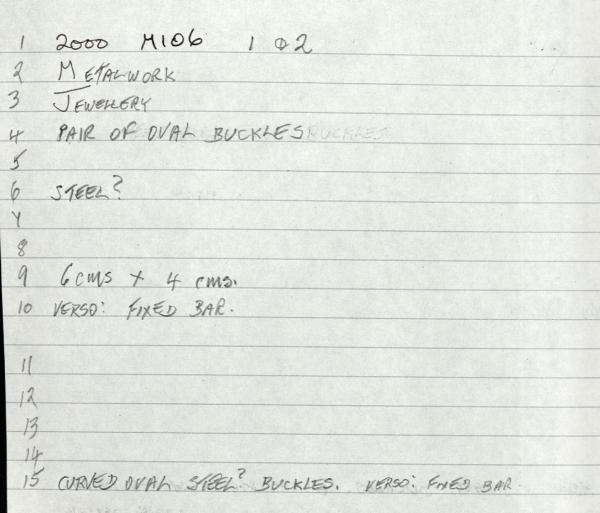 1 2000 M106 1 & 2
2 METALWORK
3 JEWELLERY
4 PAIR OF OVAL BUCKLES
5
6 STEEL?
7
8
9 6 cms x 4 cms.
10 VERSO: FIXED BAR.
11
12
13
14
15 CURVED OVAL STEEL? BUCKLES. VERSO: FIXED BAR.